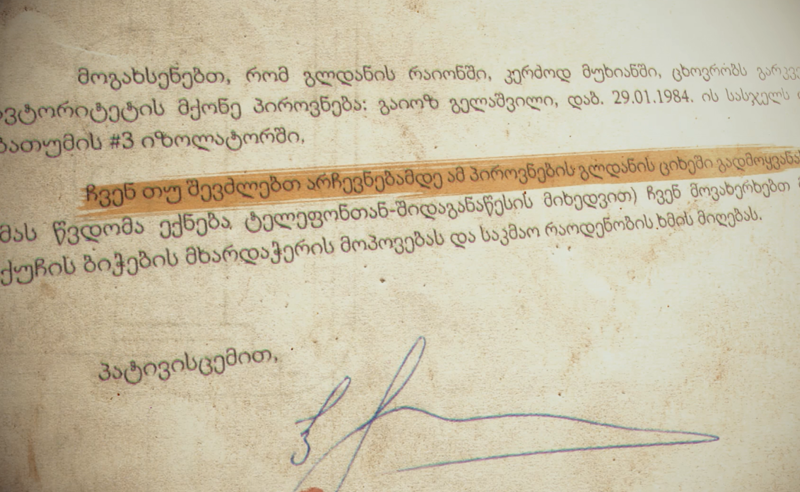 მოგახსენებთ, რომ გლდანის რაიონში, კერძოდ მუხიანში, ცხოვრობს
ავტორიტეტის მქონე პიროვნება: გაიოზ გელაშვილი, დაბ. 29.01.1984. ის სასჯელს
ბათუმის #3 იზოლატორში,
ჩვენ თუ შევძლებთ არჩევნებამდე ამ პიროვნების გლდანის ციხეში გადმოყვანას
მას წვდომა ექნება ტელეფონთან-შიდაგანაწესის მიხედვით) ჩვენ მოვახერხებთ
ქუჩის ბიჭების მხარდაჭერის მოპოვებას და საკმაო რაოდენობის ხმის მიღებას.
პატივისცემით,